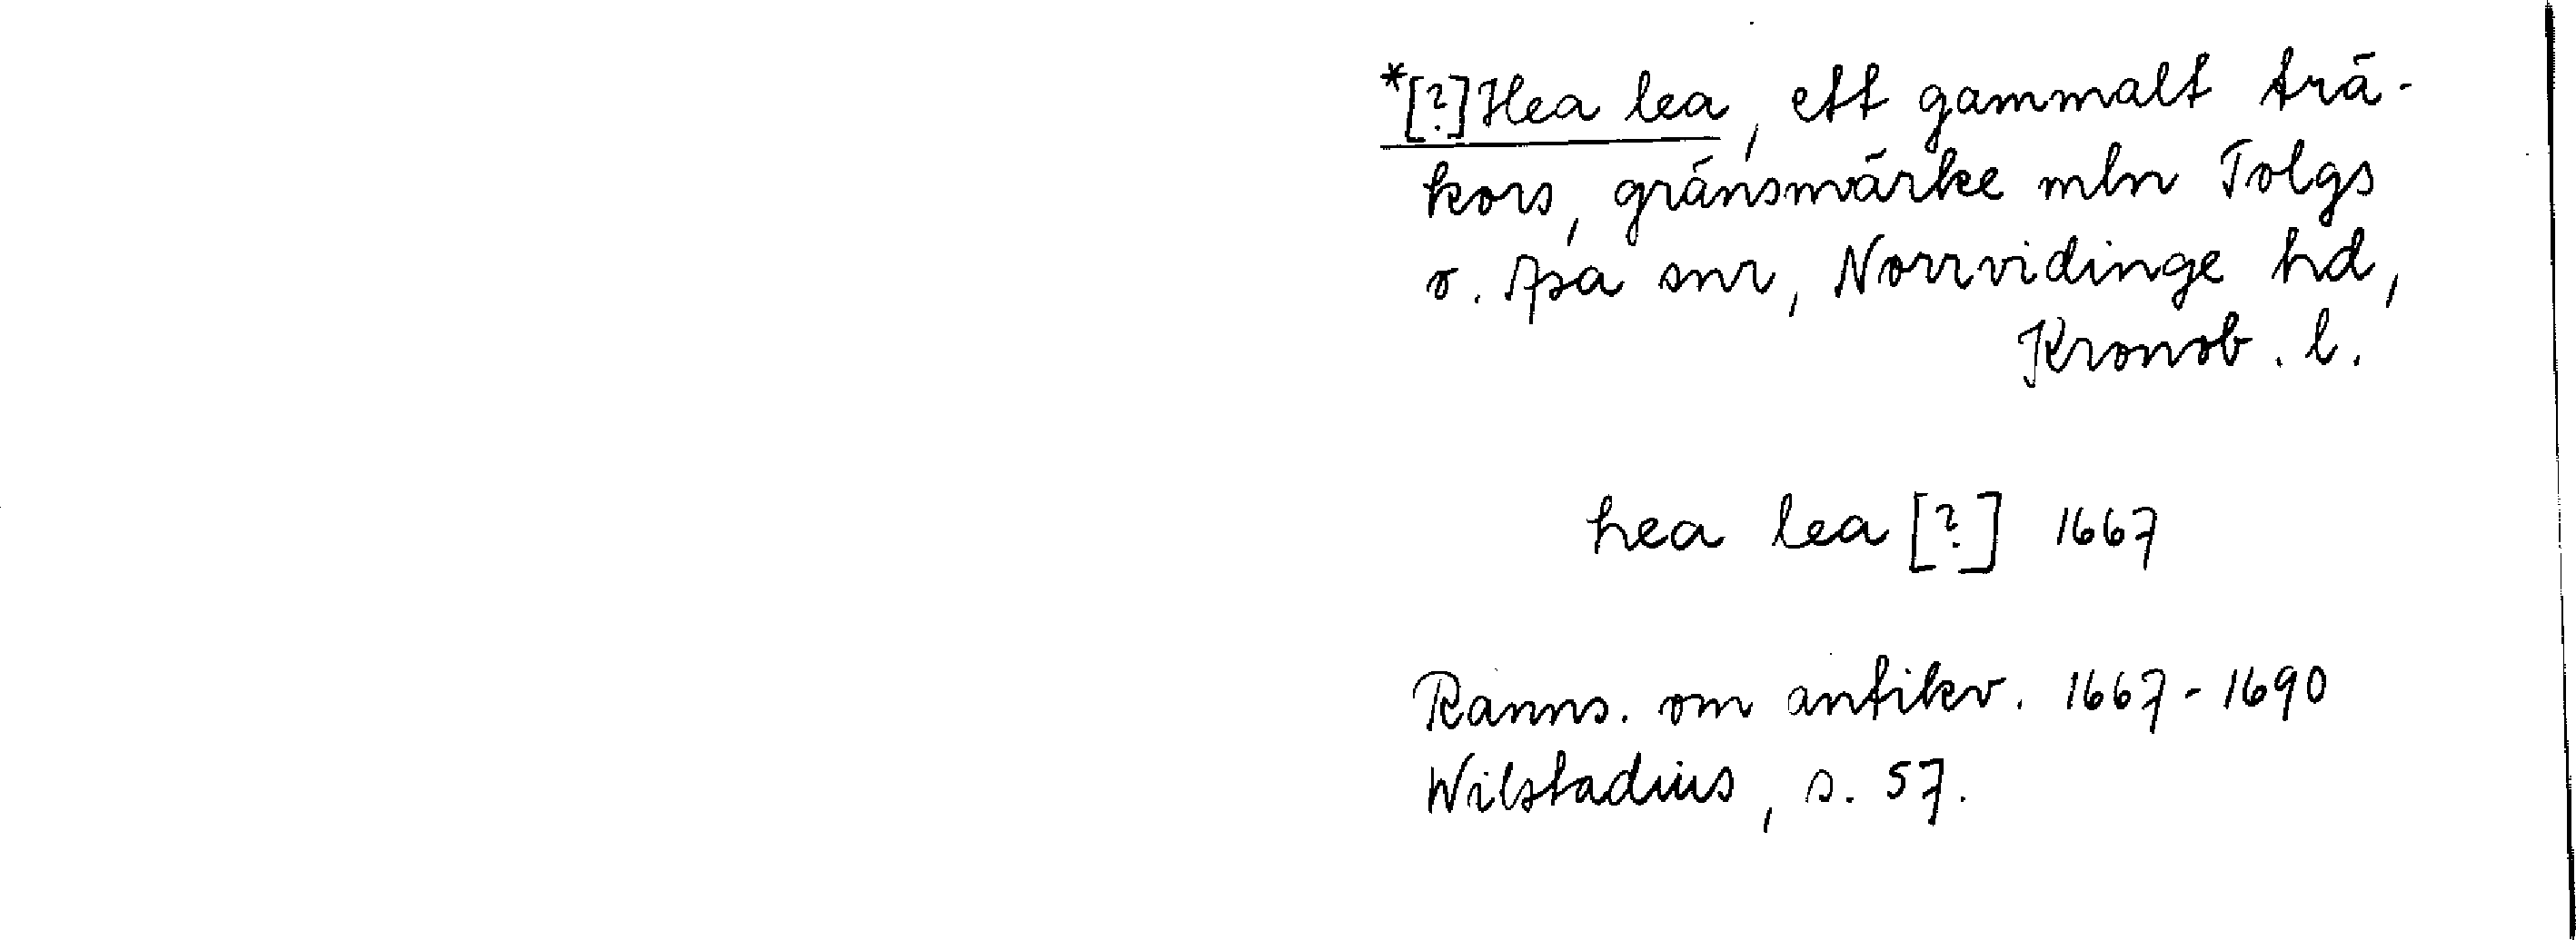 *[?]Hea lea, ett gammalt trä-
kors, gränsmärke mln Tolgs
o. Asa snr, Norrvidinge hd,
Kronob. l.
hea lea [?] 1667
Ranns. om antikv. 1667-1690
Wilstadius, s. 57.